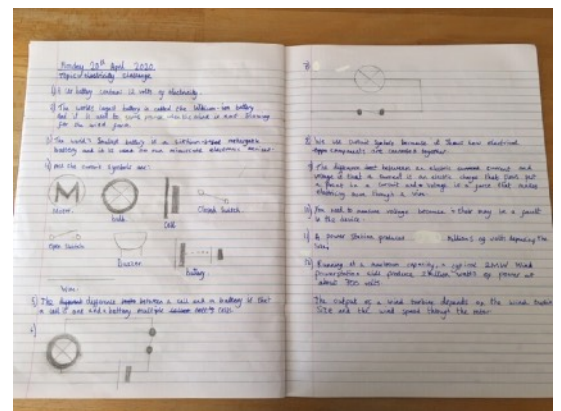 Monday 20th April 2020
Topic: electricity challenge
1) A car battery contains 12 volts of electricity.
2) The worlds largest battery is called the lithium-ion battery
and it is used to when is not blowing
for on wind farm
3) The world's smallest battery is a
battery and it is used for our miniscule electronic devices.
4) All the circuit symbols are:
M
Motor.
bulb
Cell
Closed Switch.
Open Switch
Buzzer.
Battery
Wire.
5) The difference between a cell and a battery is that
a cell is one and a battery multiple cells
6)
7)
8) We use circuit symbols because it shows how electrical
components are connected together.
9) The difference between an electric current and
voltage is that a current is an electric charge that flows past
a point in a circuit and voltage is a force that makes
electricity move through a wire.
10) You need to measure voltage because their may be a fault
in the device.
11) A power station produces millions of watts depending the
size.
12) Running at a maximum capacity, a typical 2MW wind
powerstation produce 2 million watts of power at
about 700 volts
The output of a wind turbine depends on the wind turbine
size and the wind speed through the rotor